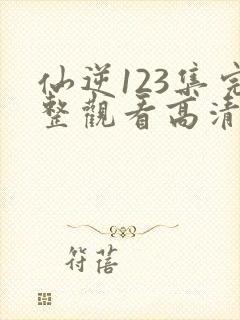 仙逆123集完
整觀看高清
符蓓